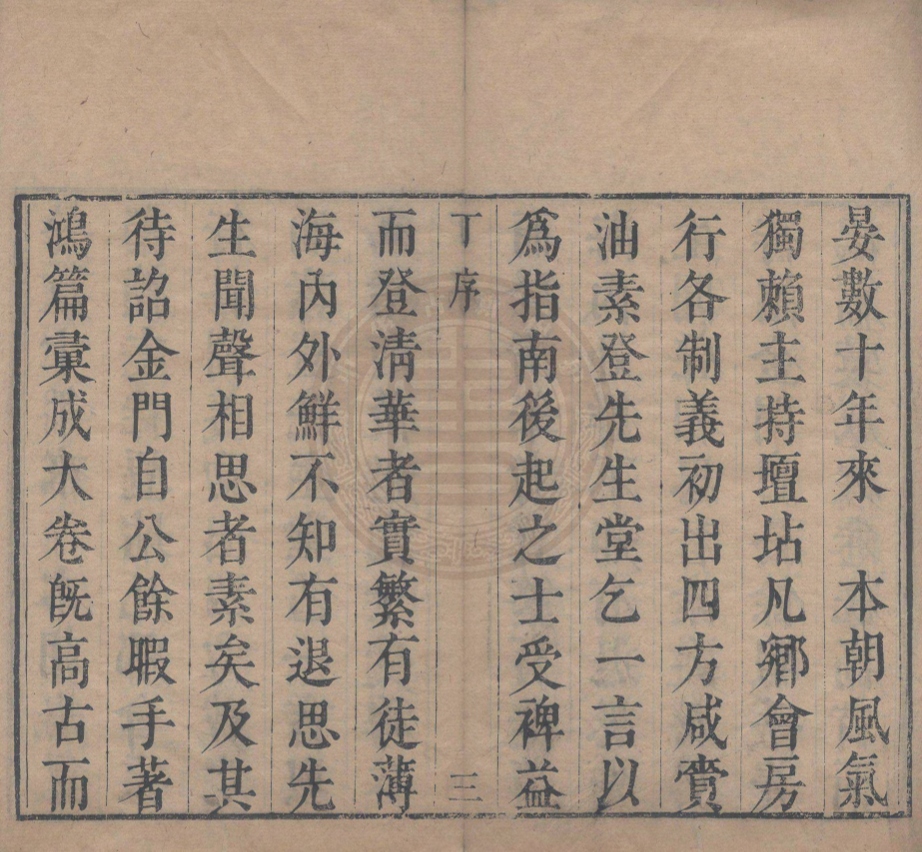 晏數十年來　本朝風氣
獨賴主持壇坫凡鄉會房
行各制義初出四方咸賫
油素登先生堂乞一言以
爲指南後起之士受裨益
丁序　三
而登淸華者實繁有徒薄
海內外鮮不知有退思先
生聞聲相思者素矣及其
待詔金門自公餘暇手著
鴻篇彙成大卷旣高古而